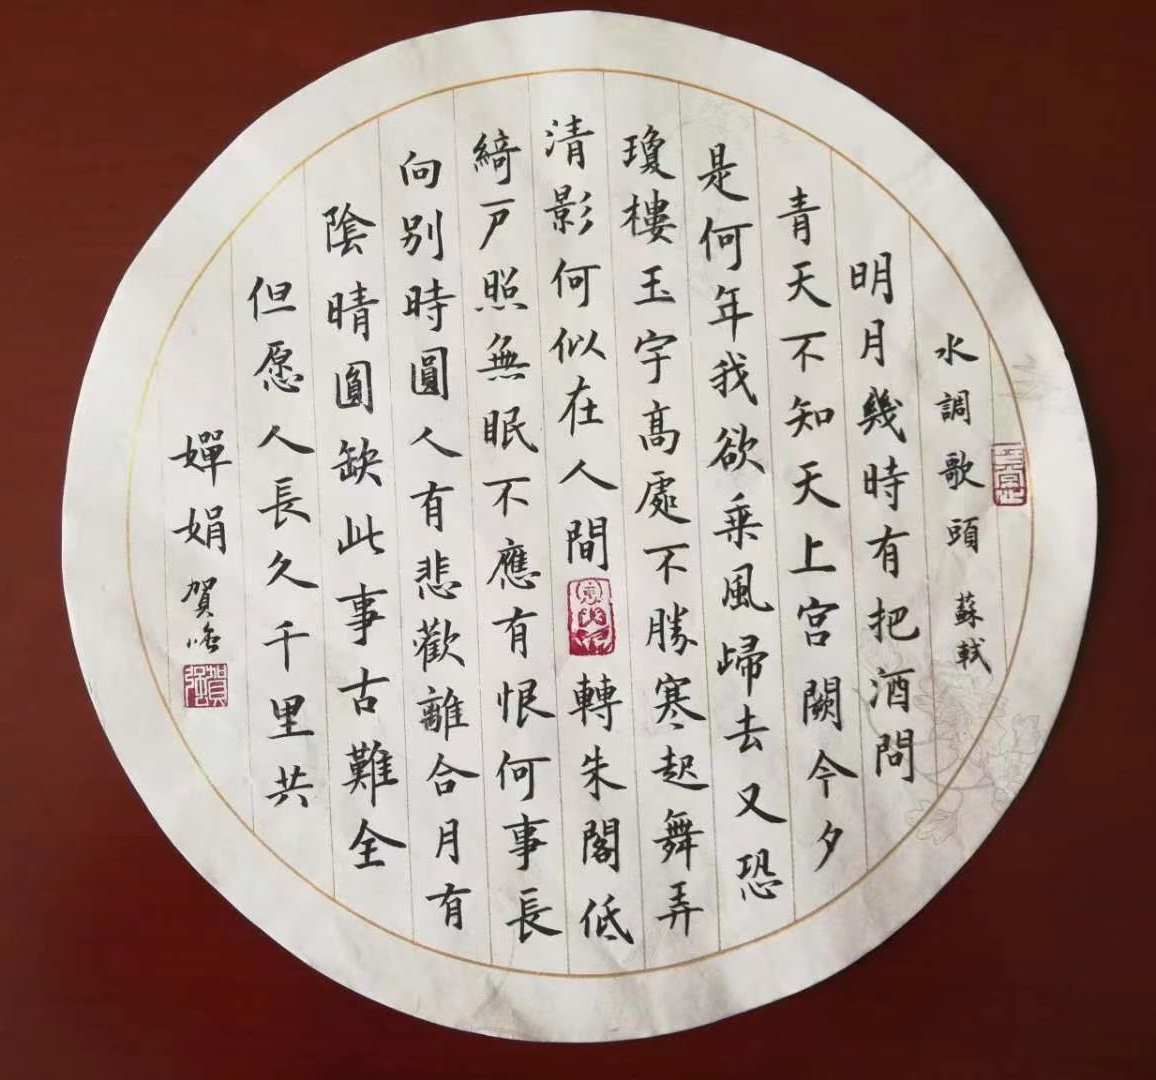 水調歌頭 蘇軾
明月幾時有把酒問
青天不知天上宮闕今夕
是何年我欲乘風歸去又恐
瓊樓玉宇高處不勝寒起舞弄
清影何似在人間轉朱閣低
綺戶照無眠不應有恨何事長
向別時圓人有悲歡離合月有
陰晴圓缺此事古難全
但愿人長久千里共
嬋娟 賀